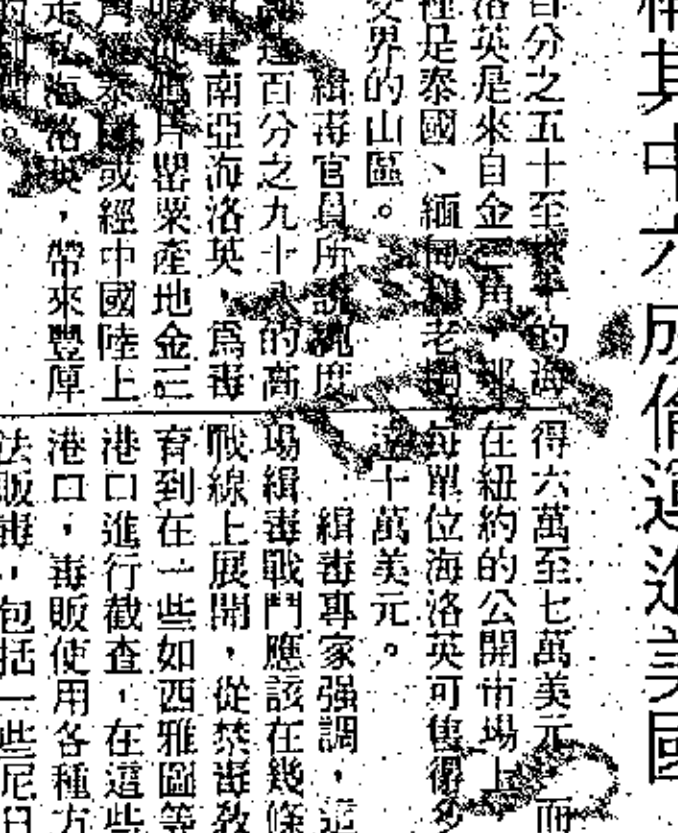 其中六成偷運進美國
百分之五十至 的海
洛英是來自金三角，那
裡是泰國、緬甸和老撾
交界的山區。
緝毒官員所說純度
高達百分之九十 的高
東南亞海洛英，爲毒
販從鴉片罌粟產地金三
角經泰國或經中國陸上
走私海洛英，帶來豐厚
的利潤。
得六萬至七萬美元，而
在紐約的公開市場上
每單位海洛英可售得多
達十萬美元。
緝毒專家强調，這
場緝毒戰鬥應該在幾條
戰線上展開，從禁毒敎
育到在一些如西雅圖等
港口進行截查，在這些
港口，毒販使用各種方
法販毒，包括一些尼日